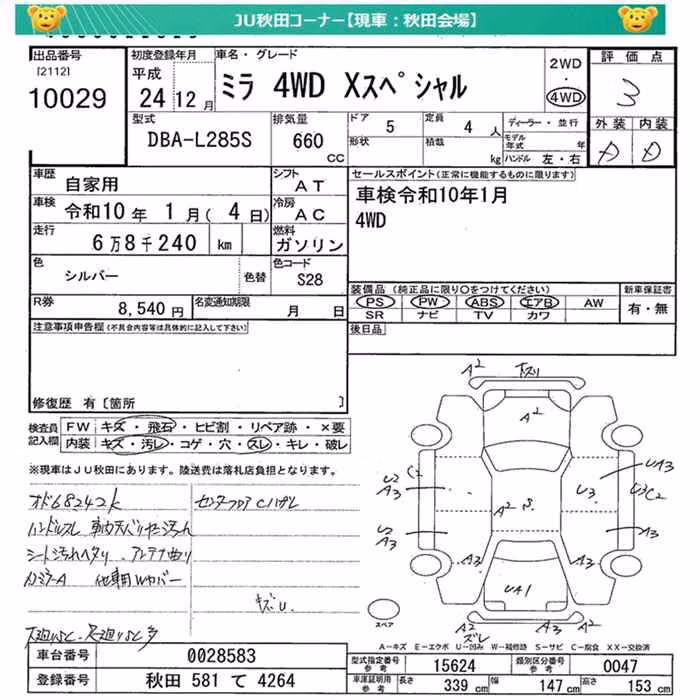 JU秋田コーナー【現車：秋田会場】
出品番号
[2112]
10029
初度登録年月
平成
24 12月
車名・グレード
ミラ 4WD Xスペシャル
2WD
・
4WD
評価点
3
外装 内装
型式
DBA-L285S
排気量
660
CC
ドア 5
形状
定員 4 人
積載 kg
ディーラー・並行
モデル年式 年
ハンドル 左・右
車歴
自家用
シフト
AT
車検 令和10年 1月( 4日)
冷房
AC
走行
6万8千240 km
燃料
ガソリン
色
シルバー
色替
色コード
S28
R券
8,540円
名変通知期限
月 日
セールスポイント(正常に機能するものに限ります)
車検令和10年1月
4WD
装備品 (純正品に限り〇をつけてください)
PS PW ABS エアB AW
SR ナビ TV カワ
新車保証書
有・無
後日品
注意事項申告欄(不具合内容等は具体的に記入して下さい)
修復歴 有 [箇所 ]
検査員
記入欄
FW キズ・飛石・ヒビ割・リペア跡・×要
内装 キズ・汚レ・コゲ・穴・スレ・キレ・破レ
※現車はJU秋田にあります。陸送費は落札店負担となります。
オド68242k
ハンドルスレ
シート汚れヘタリ アンテナ曲り
キズU
A2 キズリ
A2
U2 C2
A3
A2 S
U3
UA3
U3 C2
U2
A3
A3
A3
A3
UA1
A2
ズレ
A2
スペア
A-キズ E-エクボ U-凹み W-補修跡 S-サビ C-腐食 XX-交換済
車台番号 0028583
登録番号 秋田 581 て 4264
型式指定番号
参考
15624
類別区分番号
参考
0047
車庫証明用
参考
長さ 339 cm
幅 147 cm
高さ 153 cm